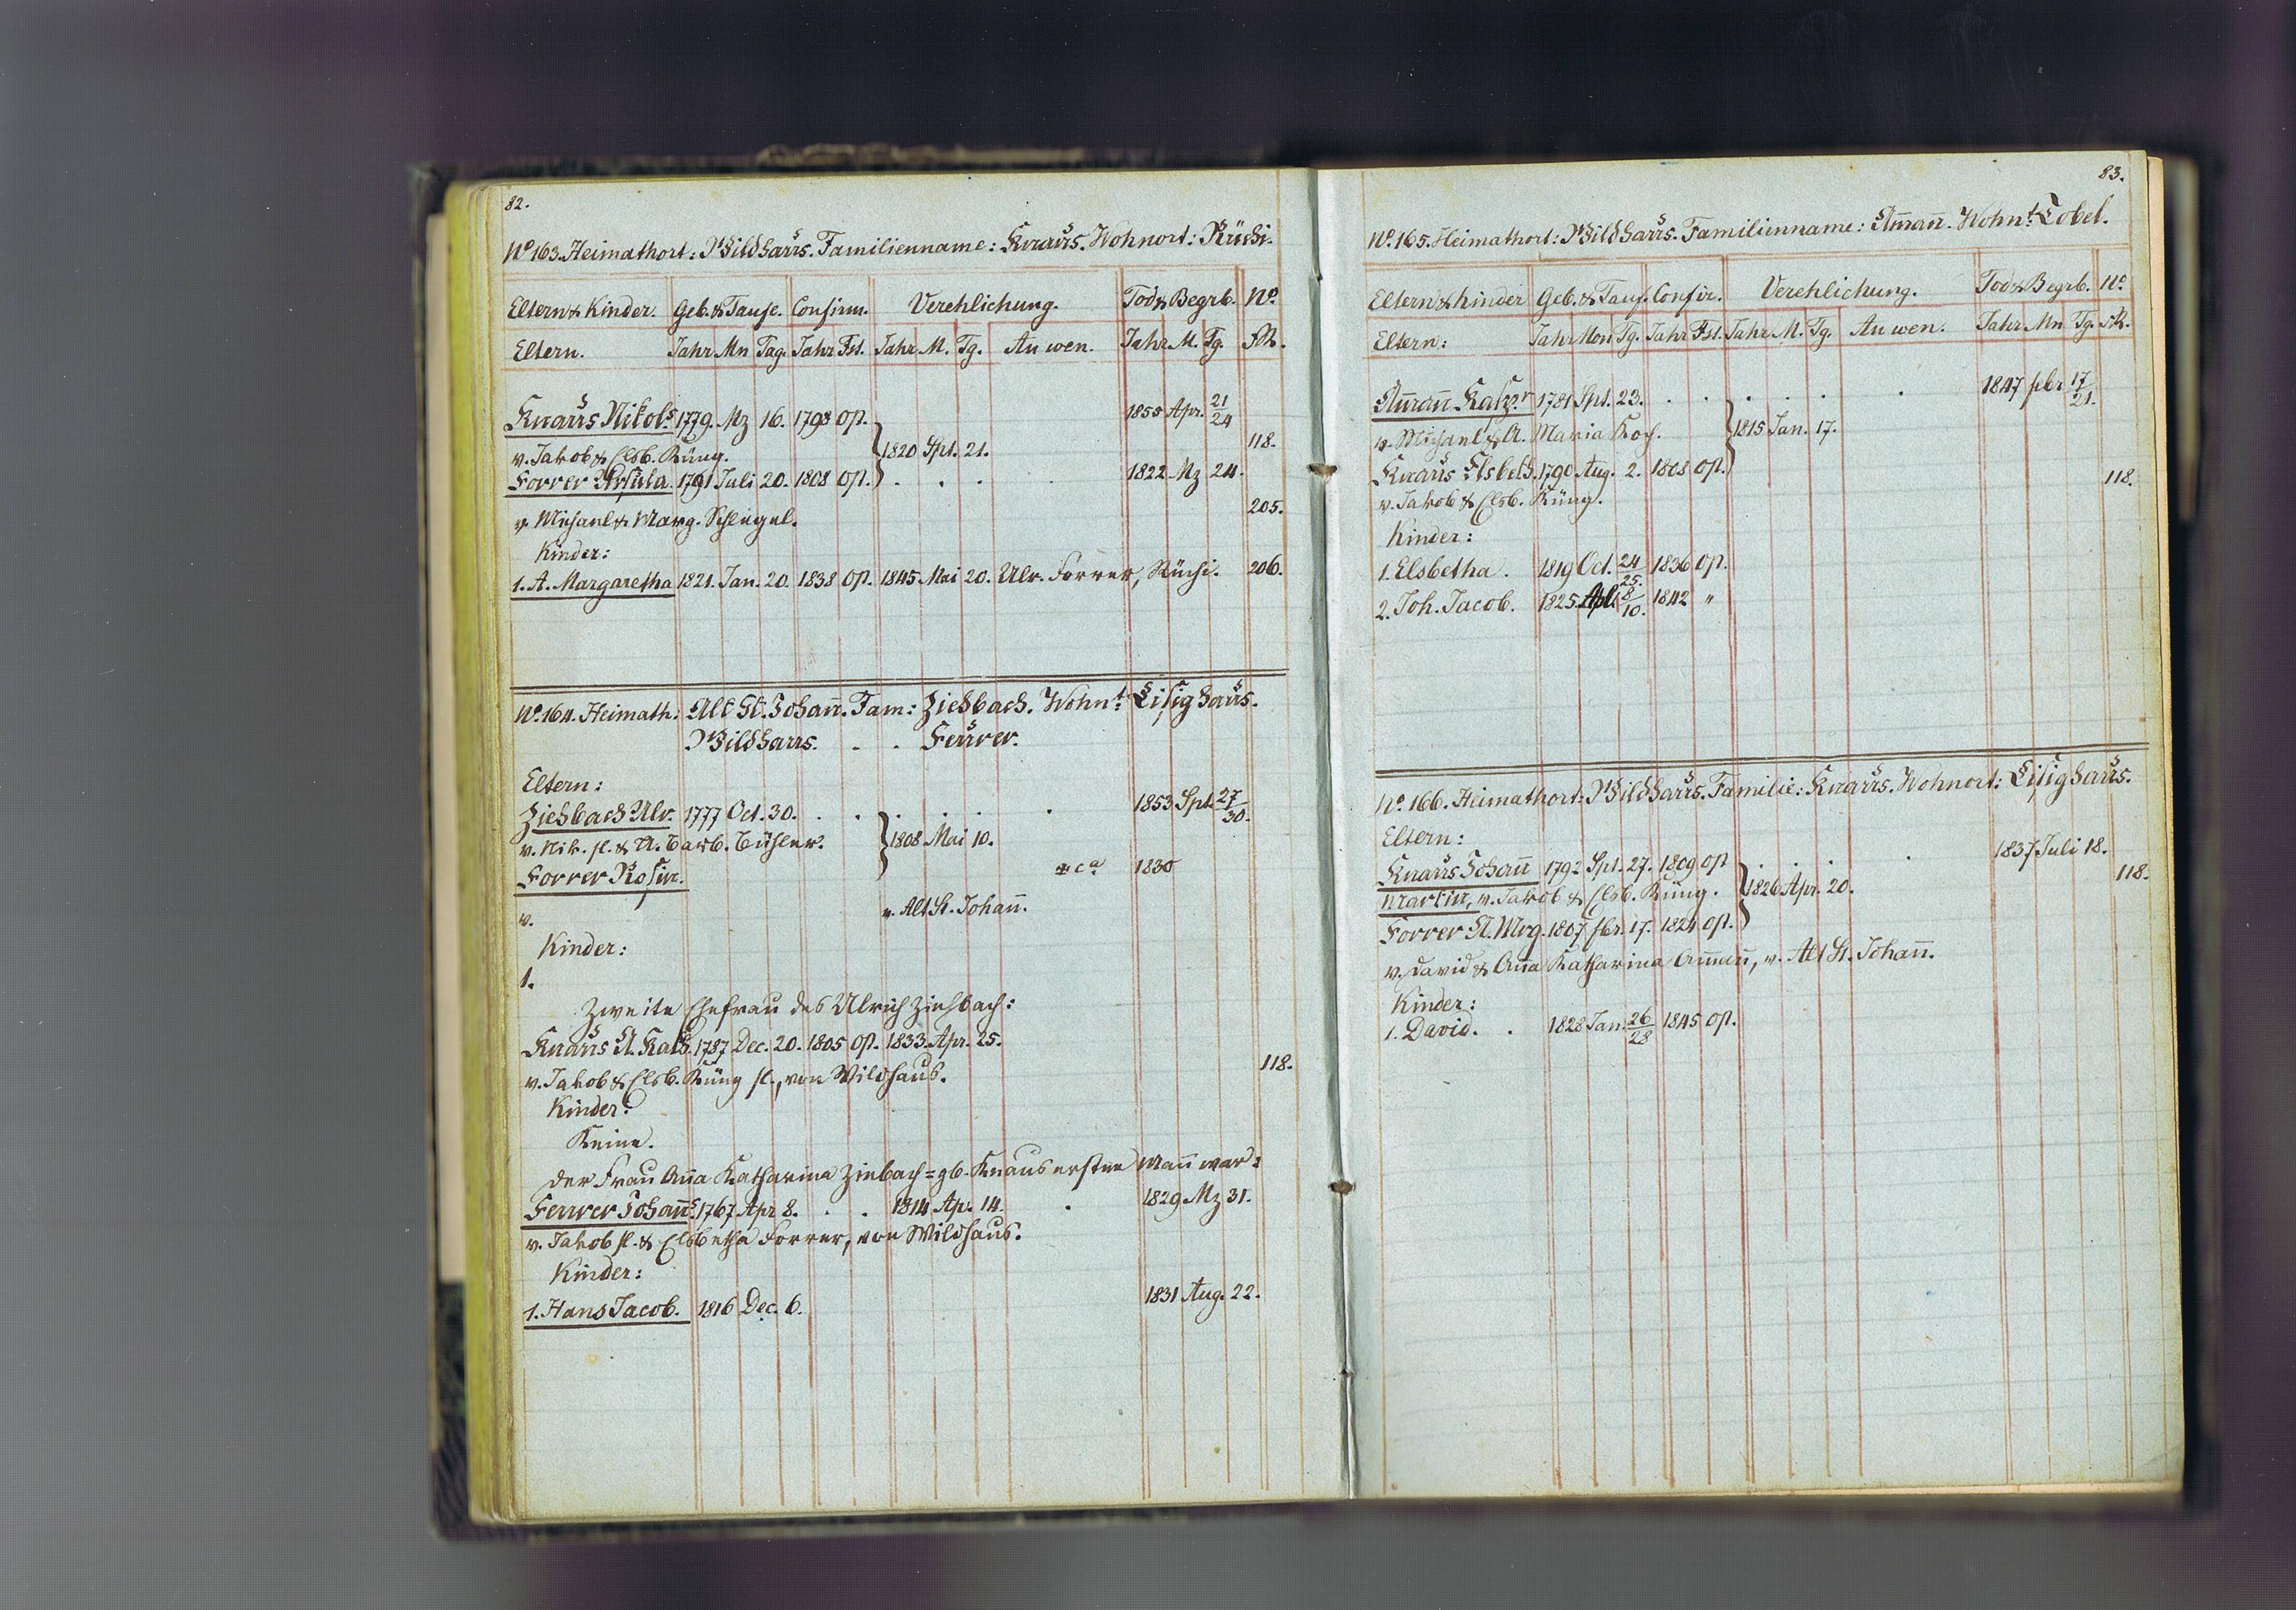 82.
No. 163. Heimathort: Wildhaus. Familienname: Knaus. Wohnort: Rüthi.
Eltern & Kinder. Geb. & Taufe. Confirm. Verehlichung. Tod & Begrb. No.
Eltern. Jahr Mn Tag. Jahr Fst. Jahr M. Tg. An wen. Jahr M. Tg.
Knaus Nikol. 1779. Mz 16. 1798 Op. 1855 Apr. 21/24
v. Jakob & Elsb. Küng. 1820 Spt. 21. 118.
Forrer Ursula. 1791 Juli 20. 1808 Op. 1822 Mz 24.
v. Michael & Marg. Schlegel. 205.
Kinder:
1. A. Margaretha 1821. Jan. 20. 1838 Op. 1845 Mai 20. Ulr. Forrer, 206.
No. 164. Heimath: Alt St. Johañ. Fam: Ziehbach. Wohnt: Lisighaus.
Wildhaus. Forrer.
Eltern:
Ziehbach Ulr. 1777 Oct. 30. 1853 Spt. 27/30.
v. Nik. sl. & A. Barb. Bühler. 1808 Mai 10.
Forrer Rosin. ca 1830
v. v. Alt St. Johañ.
Kinder:
1.
Zweite Ehefrau des Ulrich Ziehbach:
Knaus A. Kath. 1787 Dec. 20. 1805 Op. 1833 Apr. 25.
v. Jakob & Elsb. Küng sl., von Wildhaus. 118.
Kinder:
Keine.
Der Frau Aña Katharina Ziebach = gb. Knaus ersten Mañ war:
Forrer Johañs. 1767 Apr 8. 1814 Ap. 14. 1829 Mz 31.
v. Jakob sl. & Elsbetha Forrer, von Wildhaus.
Kinder:
1. Hans Jacob. 1816 Dec. 6. 1831 Aug. 22.
83.
No. 165. Heimathort: Wildhaus. Familienname: Am̄añ. Wohnt: Tobel.
Eltern & Kinder Geb. & Tauf. Confir. Verehlichung. Tod & Begrb. No
Eltern: Jahr Mon Tg. Jahr Fst. Jahr M. Tg. An wen. Jahr Mn Tg.
Am̄añ Kasp.r 1781 Spt. 23. 1847 17/21.
v. Michael & A. Maria Koch. 1815 Jan. 17.
Knaus Elsbeth. 1790 Aug. 2. 1808 Op. 118.
v. Jakob & Elsb. Küng.
Kinder:
1. Elsbetha. 1819 Oct. 24/25. 1836 Op.
2. Joh. Jacob. 1825 Apl. 8/10. 1842 "
No. 166. Heimathort: Wildhaus. Familie: Knaus. Wohnort: Lisighaus.
Eltern:
Knaus Johañ 1792 Spt. 27. 1809 Op 1837 Juli 18.
Martin, v. Jakob & Elsb. Küng. 1826 Apr. 20. 118.
Forrer A. Mrg. 1807 fbr. 17. 1824 Op.
v. David & Aña Katharina Am̄añ, v. Alt St. Johañ.
Kinder:
1. David. 1828 Jan. 26/28 1845 Op.